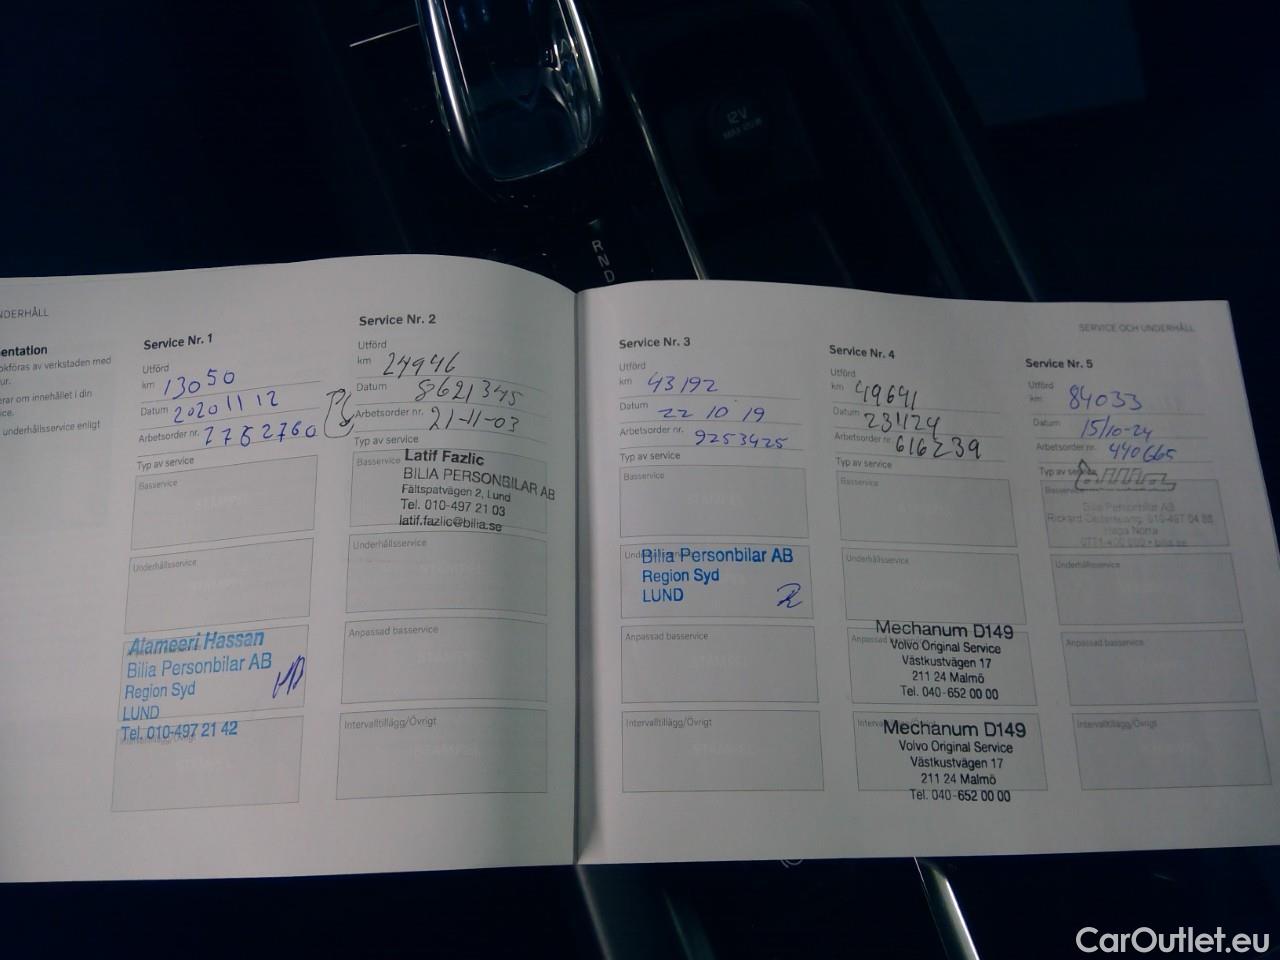 12V
R
N
D
UNDERHÅLL
Service Nr. 1
Utförd
km 13050
Datum 20201112
Arbetsorder nr. 7762760
Typ av service
Basservice
Underhållsservice
Alameeri Hassan
Bilia Personbilar AB
Region Syd
LUND
Tel. 010-497 21 42
Service Nr. 2
Utförd
km 24946
Datum 8621345
Arbetsorder nr. 21-11-03
Typ av service
Basservice
Latif Fazlic
BILIA PERSONBILAR AB
Fältspatvägen 2, Lund
Tel. 010-497 21 03
latif.fazlic@bilia.se
Underhållsservice
Anpassad basservice
Intervalltillägg/Övrigt
SERVICE OCH UNDERHÅLL
Service Nr. 3
Utförd
km 43192
Datum 22 10 19
Arbetsorder nr. 9253425
Typ av service
Basservice
Bilia Personbilar AB
Region Syd
LUND
Anpassad basservice
Intervalltillägg/Övrigt
Service Nr. 4
Utförd
km 49641
Datum 231124
Arbetsorder nr. 616239
Typ av service
Basservice
Underhållsservice
Anpassad
Mechanum D149
Volvo Original Service
Västkustvägen 17
211 24 Malmö
Tel. 040-652 00 00
Mechanum D149
Volvo Original Service
Västkustvägen 17
211 24 Malmö
Tel. 040-652 00 00
Service Nr. 5
Utförd
km 84033
Datum 15/10-24
Arbetsorder nr. 440665
Typ av service
bilia
Bilia Personbilar AB
Haga Norra
Underhållsservice
Anpassad basservice
Intervalltillägg/Övrigt
CarOutlet.eu